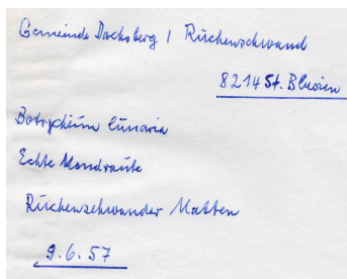 Gemeinde Dachsberg / Rüchenschwand
8214 St. Blasien
Botrychium lunaria
Echte Mondraute
Rüchenschwander Matten
9.6.57